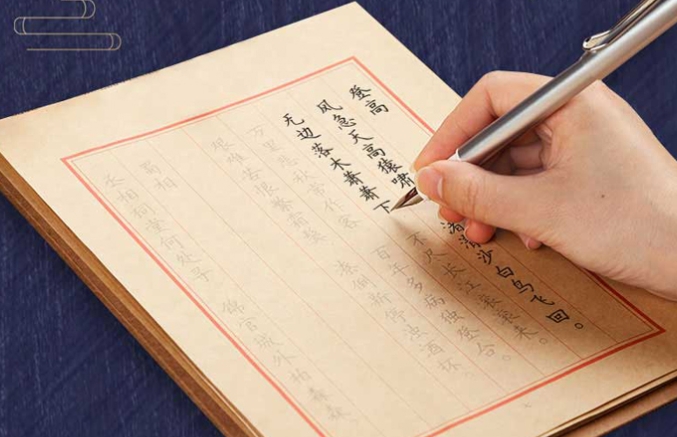 登高
风急天高猿啸
渚清沙白鸟飞回。
无边落木萧萧下
长江衮衮来。
万里悲秋常作客
百年多病独登台。
艰难苦恨繁霜鬓
潦倒新停浊酒杯
蜀相
丞相祠堂何处寻
锦官城外柏森森